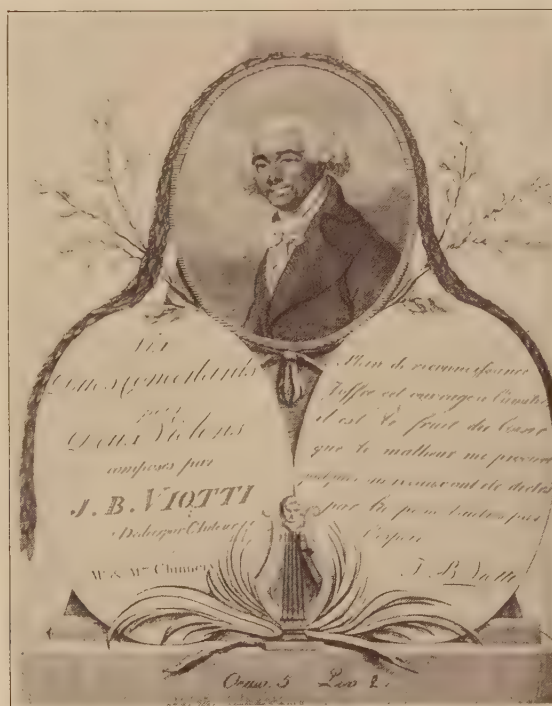 Six
Duos Concertants
pour
Deux Violons
composés par
J. B. VIOTTI
Mr & Mme Chinnery
Plein de reconnoissance
J'offre cet ouvrage à l'amitié
il est le fruit du loisir
que le malheur me procure
morceaux ont été dictés
par la peine d'autres par
l'espoir
J. B. Viotti
Oeuv. 5 Liv 2.